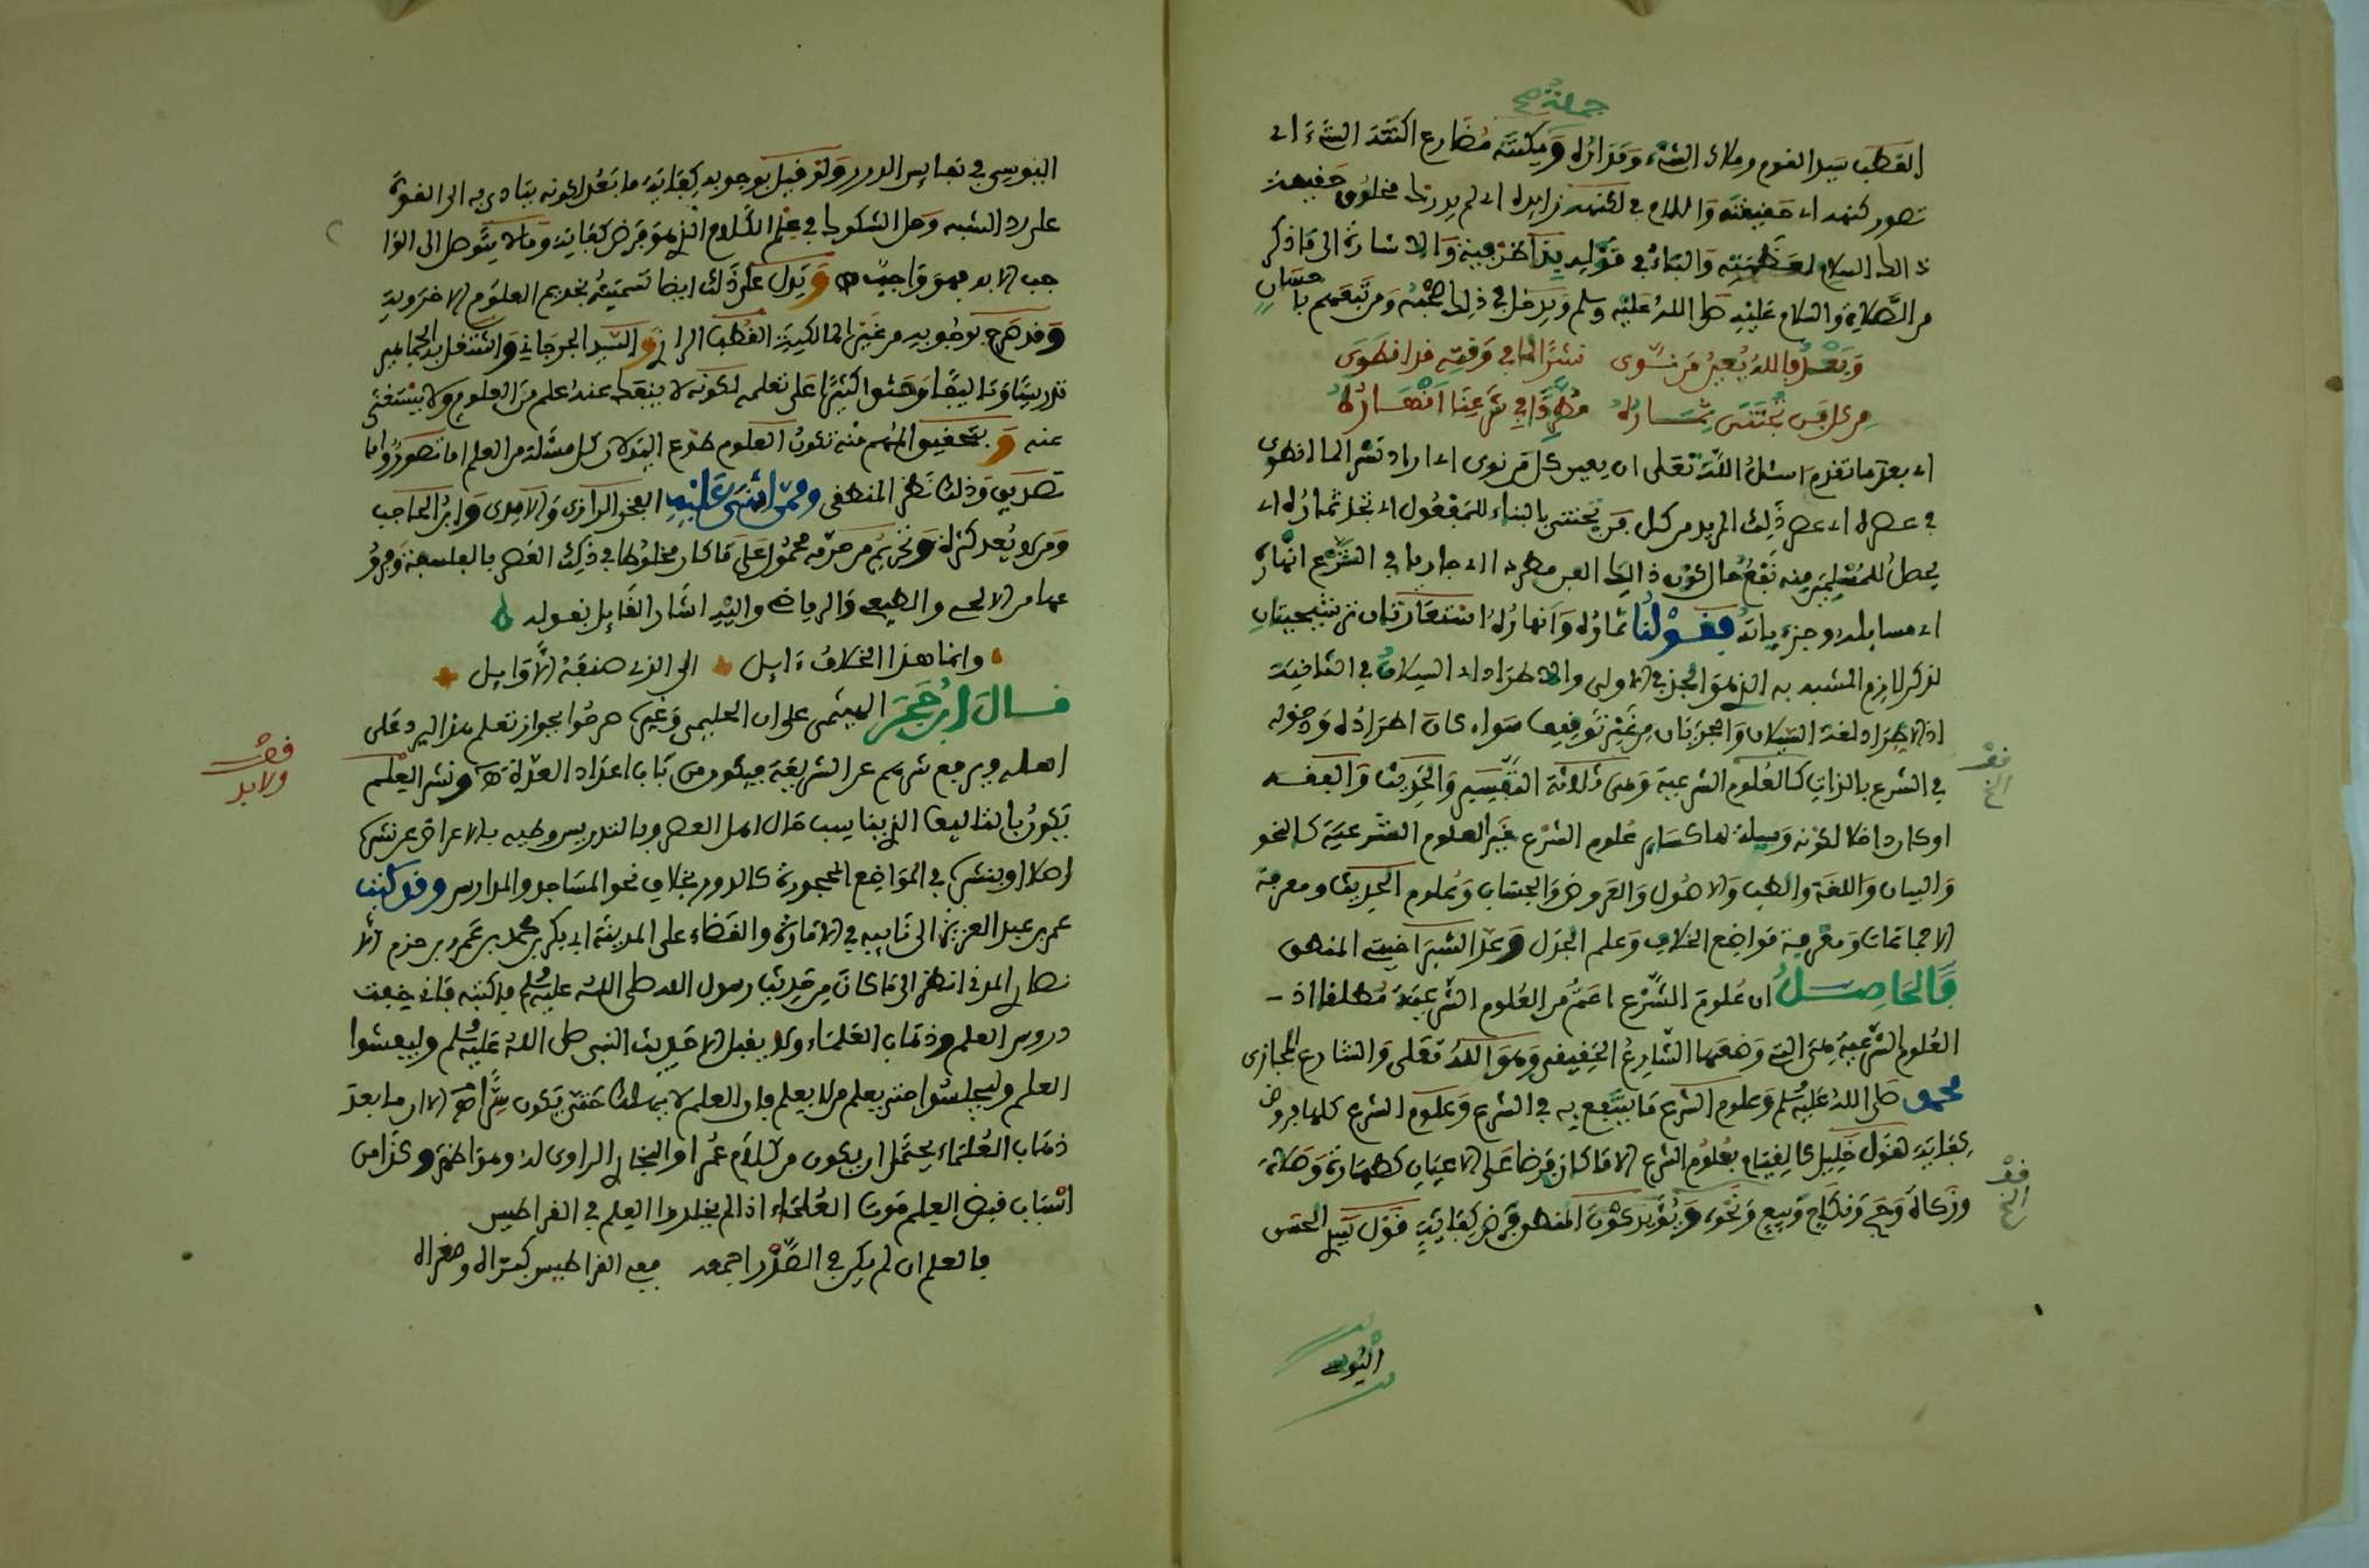 جملة صح
القطب سيد القوم وملاك الشيء ومداره ويكتنه مضارع اكتنه الشيء اي
تصور كنهه اي حقيقته واللام في لكنهه زايدة اي لم يدرك مخلوق حقيقة
ذالك السلام لعظمته والباء في قوله بذا ظرفية والاشارة الى ما ذكر
من الصلاة والسلام عليه صلى الله عليه وسلم ويدخل في ذلك صحبه ومن تبعهم باحسان
وبعد فالله يعين من نوى نشرا لما في وقته قد انطوى
من كل فن تجتنى ثماره مطردا في شرعنا انهاره
اي بعد ما تقدم اسئل الله تعلى ان يعين كل من نوى اي اراد نشر الما انطوى
في عصره اي عصر ذلك المريد من كل فن تجتنى بالبناء للمفعول اي تجد ثماره اي
يحصل للمسلمين منه نفع حال كون ذالك الفن مطردا اي جاريا في الشرع انهاره
اي مسايله وجزءياته فقولنا ثماره وانهاره استعارتان ترشيحيتان
لذكر لازم المشبه به الذي هو الجنى في الاولى والاطراد اي السيلان في الثانية
اذ الاطراد لغة السيلان والجريان من غير توقيف سواء كان اطراده ودخوله
في الشرع بالذات كالعلوم الشرعية وهي ثلاثة التفسير والحديث والفقه
او كان داخلا لكونه وسيلة لها كساير علوم الشرع غير العلوم الشرعية كالنحو
والبيان واللغة والطب والاصول والعروض والحساب وعلوم الحديث ومعرفة
الاجماعات ومعرفة مواضع الخلاف وعلم الجدل وعد الشبراخيتي المنطق
والحاصل ان علوم الشرع اعم من العلوم الشرعية مطلقا اذ
العلوم الشرعية هي التي وضعها الشارع الحقيقي وهو الله تعلى والشارع المجازي
محمد صلى الله عليه وسلم وعلوم الشرع ما ينتفع به في الشرع وعلوم الشرع كلها فروض
كفاية لقول خليل كالقيام بعلوم الشرع الا ما كان فرضا على الاعيان كطهارة وصلاة
وزكاة وحج ونكاح وبيع ونحوه ويؤيد كون المنطق فرض كفاية قول الحسن
اليوسي
اليوسي في نفايس الدرر ولو قيل بوجوبه كفاية ما بعد لكونه يتادى به الى القوة
على رد الشبه وحل الشكوك في علم الكلام الذي هو فرض كفاية وما لا يتوصل الى الوا
جب الا به فهو واجب اه ويدل على ذلك ايضا تسميته بخديم العلوم الاخروية
وقد صرح بوجوبه من غير المالكية القطب الرازي والسيد الجرجاني واشتغل به الجماهير
تدريسا وتاليفا وحثوا كثيرا على تعلمه لكونه لا ينفك عنه علم من العلوم ولا يستغنى
عنه وبتحقيق المهم منه تكون العلوم طوع اليد لان كل مسئلة من العلم اما تصور واما
تصديق وذلك نظر المنطقي وممن اثنى عليه الفخر الرازي والامدي وابن الحاجب
ومن لا يعد كثرة وتحريم من حرمه محمول على ما كان مخلوطا في ذلك العصر بالفلسفة وفرو
عها من الالهي والطبيعي والرياضي واليه اشار القايل بقوله
وانما هذا الخلاف ءايل الى الذي صنفه الاوايل
قال ابن حجر الهيتمي على ان الحليمي وغيره صرحوا بجواز تعلم هذا ليرد على
اهله ويرفع شرهم عن الشريعة فيكون من باب اعداد العدة اه ونشر العلم
يكون بالتاليف الذي يناسب حال اهل العصر وبالتدريس وطيه بالاعراض عن نشره
اصلا او ينشره في المواضع المحجورة كالدور بخلاف نحو المساجد والمدارس وقد كتب
عمر بن عبد العزيز الى نايبه في الامارة والقضاء على المدينة ابي بكر بن محمد بن عمرو بن حزم الا
نصاري المدني انظر الى ما كان من حديث رسول الله صلى الله عليه وسلم فاكتبه فاني خفت
دروس العلم وذهاب العلماء ولا يقبل الا حديث النبي صلى الله عليه وسلم وليفشوا
العلم وليجلسوا حتى يعلم من لا يعلم فان العلم لا يهلك حتى يكون سرا اه الا ان ما بعد
ذهاب العلماء يحتمل ان يكون من كلام عمر او البخاري الراوي له وهو اظهر وكذا من
اسباب قبض العلم موت العلماء اذا لم يخلدوا العلم في القراطيس
فالعلم ان لم يكن في الصدر اجمعه ففي القراطيس كبراه وصغراه
قف
ولا بد